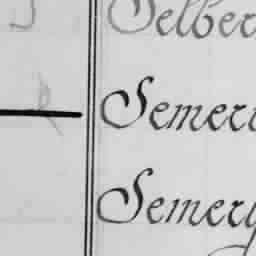 Selber
Semer
Semery